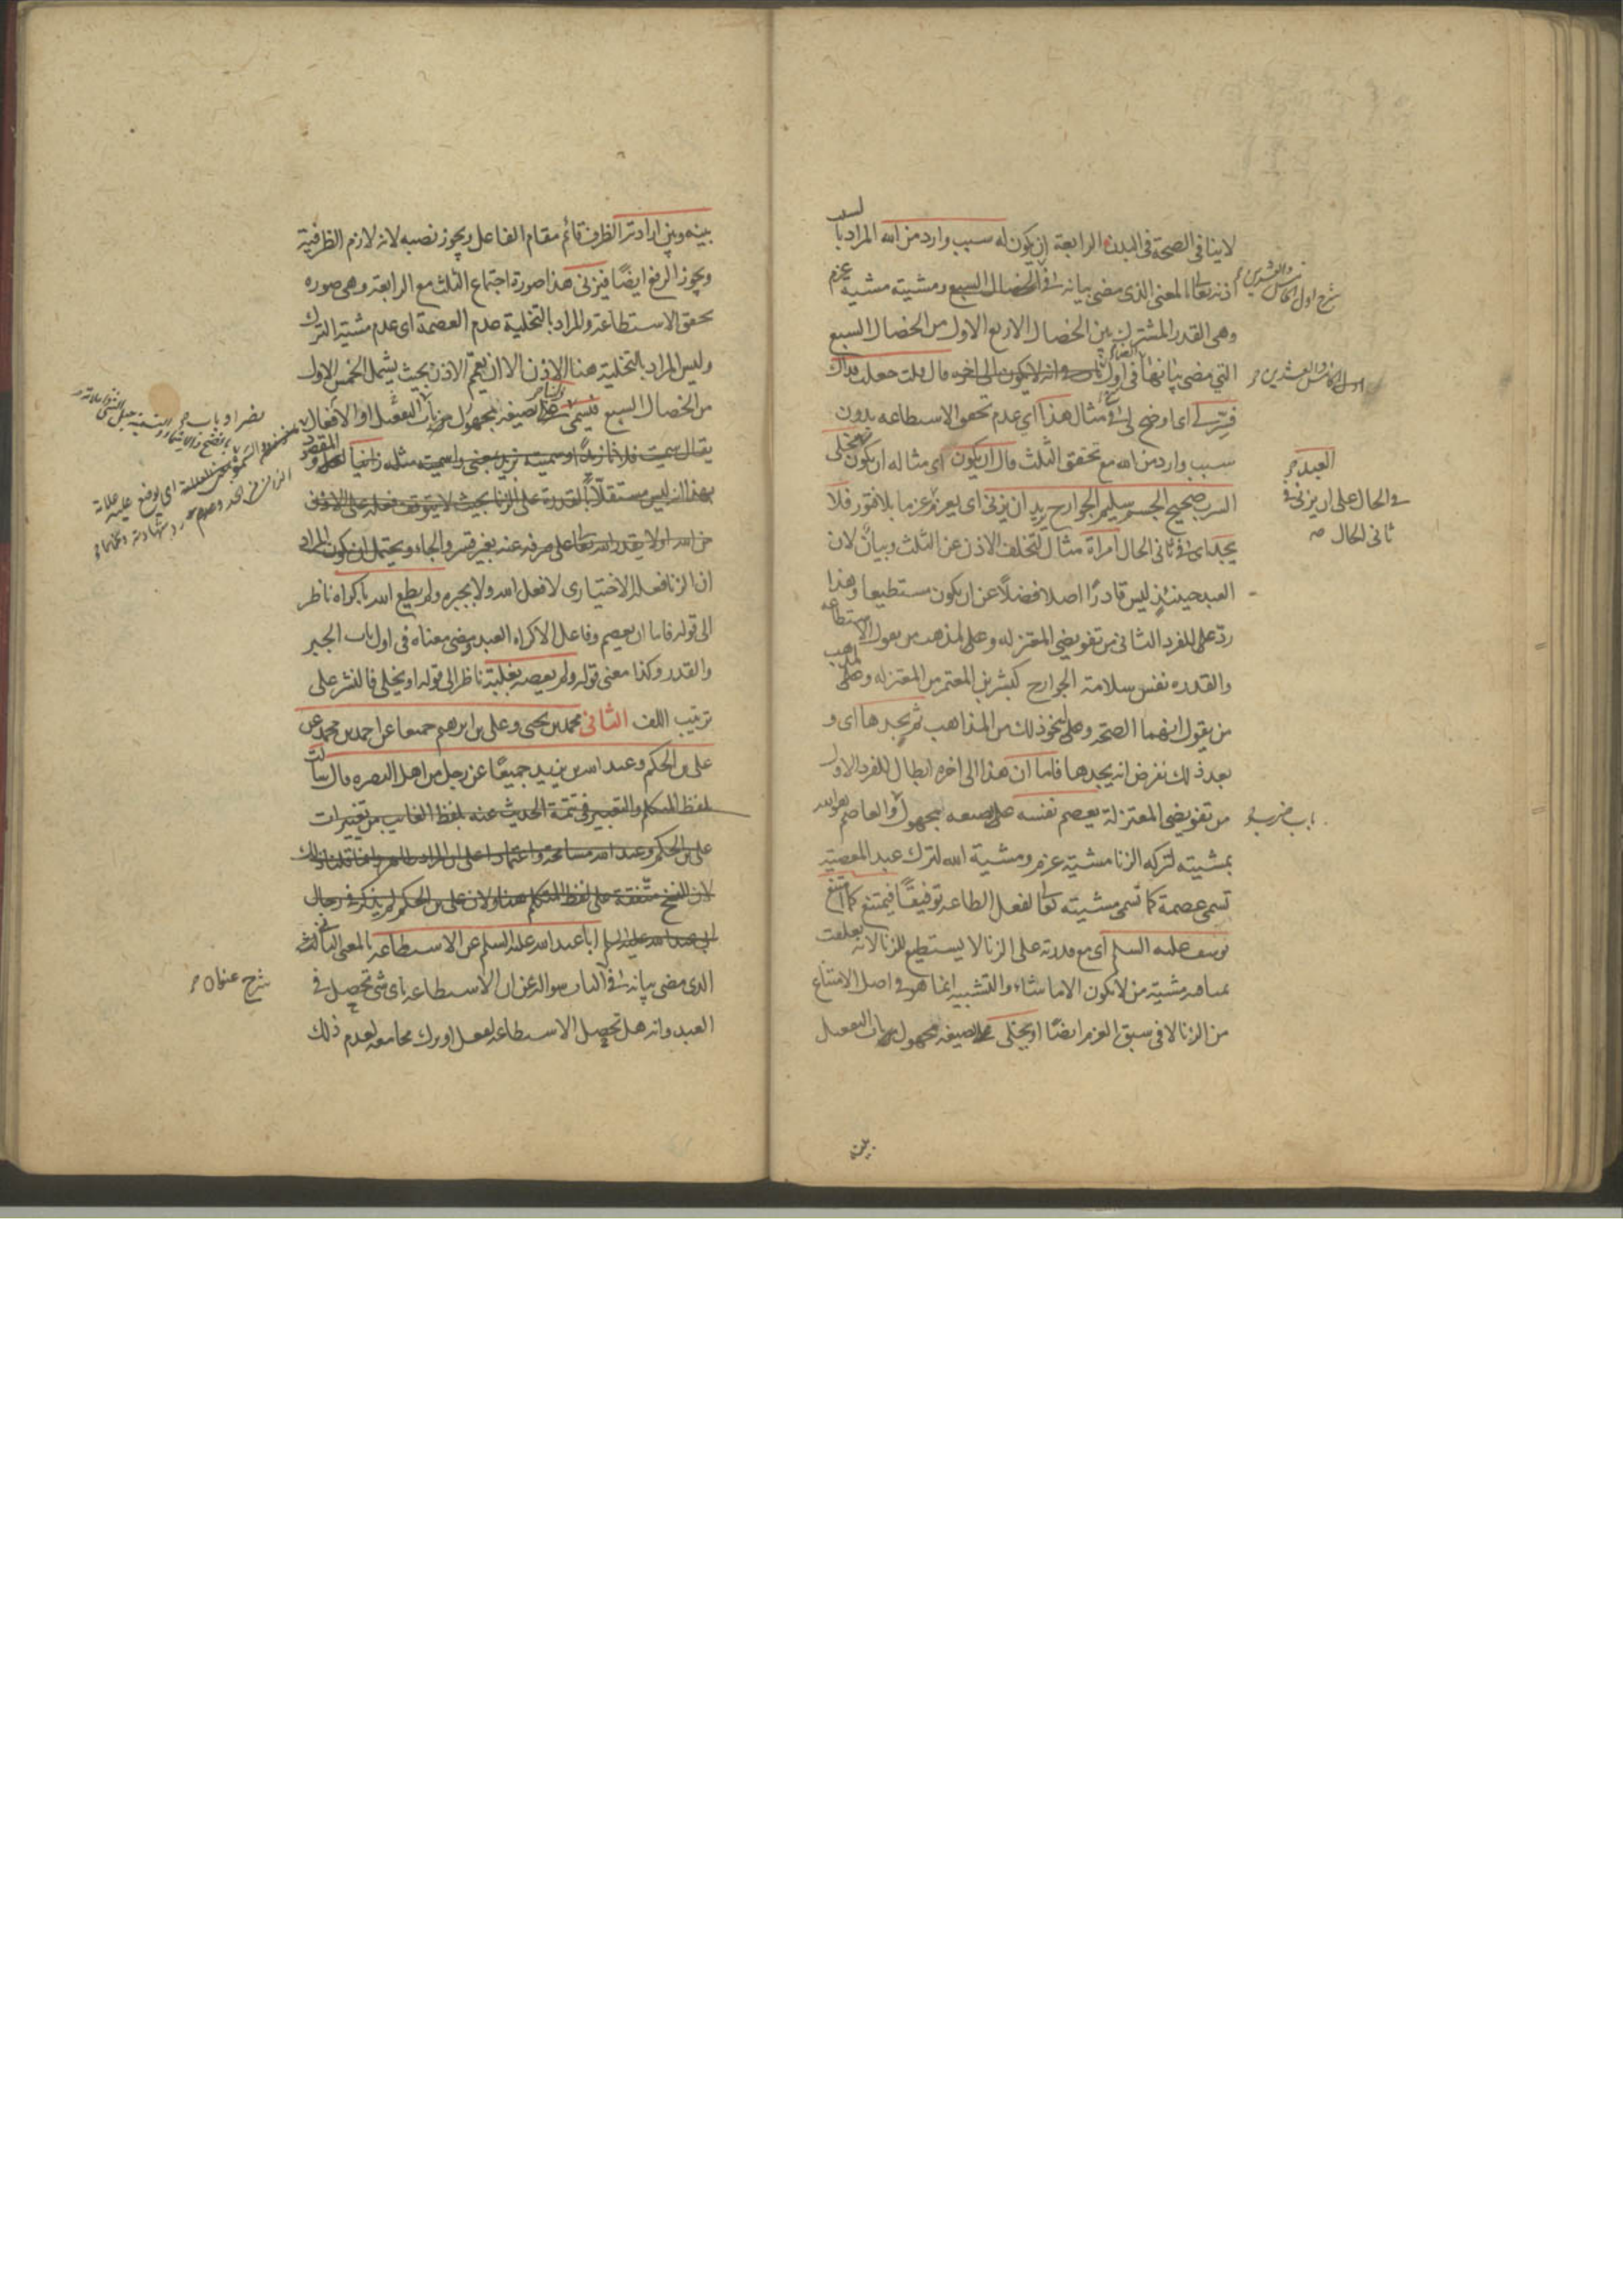 لا ينافى الصحة فى البدن الرابعة ان يكون له سبب وارد من الله المراد بالسبب
اذنه تعالى بالمعنى الذى مضى بيانه فى الخصال السبع ومشيته مشية عزم
وهى القدر المشترك بين الخصال الاربع الاول من الخصال السبع
التى مضى بيانها فى اول باب فى انه لا يكون الى اخره قال قلت جعلت فداك
فسّر لى اى اوضح لى مثال هذا اى عدم تحقق الاستطاعة بدون
سبب وارد من الله مع تحقق الثلث قال ان يكون اى مثاله ان يكون مخلى
السرب صحيح الجسم سليم الجوارح يريد ان يزنى اى يعزم عزما بلا فتور فلا
يجد اى فى ثانى الحال امرأة مثال لتخلف الاذن عن الثلث وبيان لان
العبد حينئذ ليس قادرًا اصلا فضلًا عن ان يكون مستطيعا وهذا
ردّ على للفرد الثانى من تفويضى المعتزلة وعلى مذهب من يقول الاستطاعة
والقدرة نفس سلامة الجوارح كبشر بن المعتمر من المعتزلة وعلى مذهب
من يقول انهما الصحة وعلى نحو ذلك من المذاهب ثم يجدها اى و
بعد ذلك نفرض انه يجدها فاما ان هذا الى اخره ابطال للفرد الاول
من تفويضى المعتزلة يعصم نفسه على صيغة مجهول والعاصم هو الله
بمشيته لتركه الزنا مشية عزم ومشية الله لترك عبد المعصية
تسمى عصمة كما تسمى مشيته تعالى لفعل الطاعة توفيقًا فيمتنع كما امتنع
يوسف عليه السلم اى مع قدرته على الزنا لا يستطيع للزنا لانه تعلقت
مشية من لا يكون الا ما شاء والتشبيه انما هو فى اصل الامتناع
من الزنا لا فى سبق العزم ايضًا او يخلى على صيغة مجهول باب التفعيل
بينه
شرح اول الخامس والعشرين
اول الخامس والعشرين
العبد
فى الحال على ان يزنى فى
ثانى الحال صه
باب ضرب
بينه وبين ارادته الظرف قائم مقام الفاعل ويجوز نصبه لانه لازم الظرفية
ويجوز الرفع ايضًا فيزنى هذا صورة اجتماع الثلث مع الرابعة وهى صورة
تحقق الاستطاعة والمراد بالتخلية عدم العصمة اى عدم مشية الترك
وليس المراد بالتخلية هنا الاذن الا ان يعمّ الاذن بحيث يشمل الخمس الاول
من الخصال السبع فيسمى على صيغة مجهول من باب التفعيل او الافعال
يقال سميت فلانا زيدًا وسميته بزيد بمعنى واسميته مثله زانيا المقصود
بهذا انه ليس مستقلًا بالقدرة على الزنا بحيث لا يتوقف فعله على الاذن
من الله او لا يقدر الله تعالى على صرفه عنه بغير قسر والجاء ويحتمل ان يكون المراد
ان الزنا فعله الاختيارى لا فعل الله ولا بجبره ولم يطع الله باكراه ناظر
الى قوله فاما ان يعصم وفاعل الاكراه العبد ومضى معناه فى اول باب الجبر
والقدر وكذا معنى قوله ولم يعصه بغلبة ناظر الى قوله او يخلى فالنشر على
ترتيب اللف الثانى محمد بن يحيى وعلى بن ابرهيم جميعا عن احمد بن محمد عن
على بن الحكم وعبد الله بن يزيد جميعًا عن رجل من اهل البصرة قال سالت
بلفظ المتكلم والتعبير فى تتمة الحديث عنه بلفظ الغايب من تغييرات
على بن الحكم وعبد الله مسامحة واعتمادا على ان المراد ظاهر وانما قلنا ذلك
لان النسخ متفقة على لفظ المتكلم هنا ولان على بن الحكم لم يذكر فى رجال
ابى عبد الله عليه السلم ابا عبد الله عليه السلم عن الاستطاعة بالمعنى الثالث
الذى مضى بيانه فى الباب سواله عن ان الاستطاعة باى شئ تحصل فى
العبد وانه هل تحصل الاستطاعة لفعل او ترك مجامعة لعدم ذلك
شرح عنوان